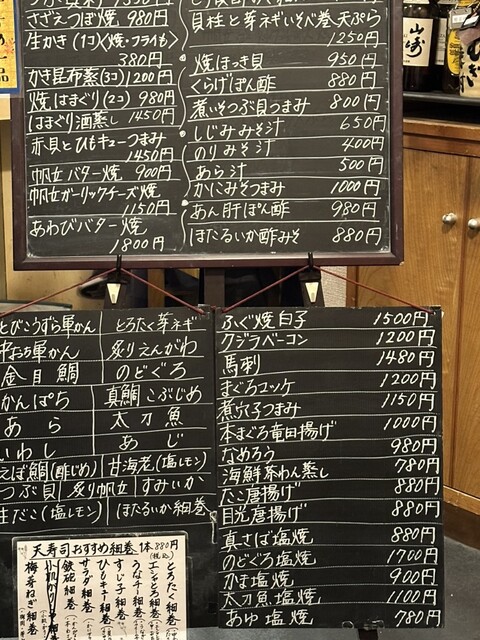 さざえつぼ焼 980円
生かき(1コ)<焼・フライも>
380円
かき昆布蒸(3コ)1200円
焼はまぐり(2コ) 980円
はまぐり酒蒸し 1450円
赤貝とひもキューつまみ
1450円
帆立バター焼 900円
帆立ガーリックチーズ焼
1150円
あわびバター焼
1800円
貝柱と芽ネギいそべ巻天ぷら
1250円
焼ほっき貝 950円
くらげぽん酢 880円
煮いそつぶ貝つまみ 800円
しじみみそ汁 650円
のりみそ汁 400円
あら汁 500円
かにみそつまみ 1000円
あん肝ぽん酢 980円
ほたるいか酢みそ 880円
山崎
とびこうずら軍かん
中おち軍かん
金目鯛
かんぱち
あら
いわし
えぼ鯛(酢じめ)
つぶ貝
生だこ(塩レモン)
とろたく芽ネギ
炙りえんがわ
のどぐろ
真鯛こぶじめ
太刀魚
あじ
甘海老(塩レモン)
炙り帆立 すみいか
ほたるいか細巻
ふぐ焼白子 1500円
クジラベーコン 1200円
馬刺 1480円
まぐろユッケ 1200円
煮穴子つまみ 1150円
本まぐろ竜田揚げ 1000円
なめろう 980円
海鮮茶わん蒸し 780円
たこ唐揚げ 880円
目光唐揚げ 880円
真さば塩焼 980円
のどぐろ塩焼 1700円
かま塩焼 900円
太刀魚塩焼 1100円
あゆ塩焼 780円
天寿司おすすめ細巻 1本 880円
(税込)
とろたく細巻
エンシャロ細巻
うなキュー細巻
すじ子細巻
ひもキュー細巻
サラダ細巻
鉄砲細巻
梅芽ねぎ細巻